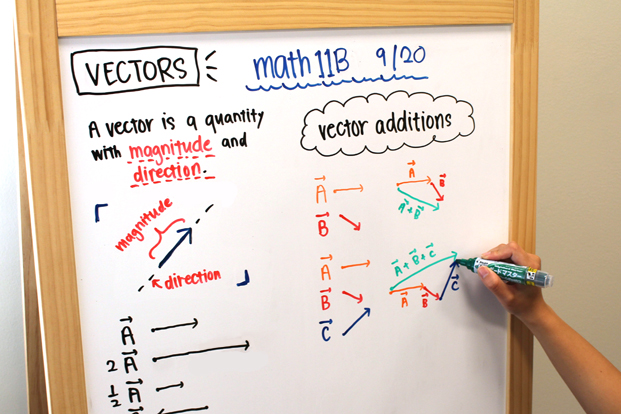 VECTORS
math 11B 9/20
A vector is a quantity
with magnitude and
direction.
magnitude
direction
A⃗
2 A⃗
1/2 A⃗
vector additions
A⃗
B⃗
A⃗
B⃗
A⃗+B⃗
A⃗
B⃗
C⃗
A⃗+B⃗+C⃗
A⃗
B⃗
C⃗